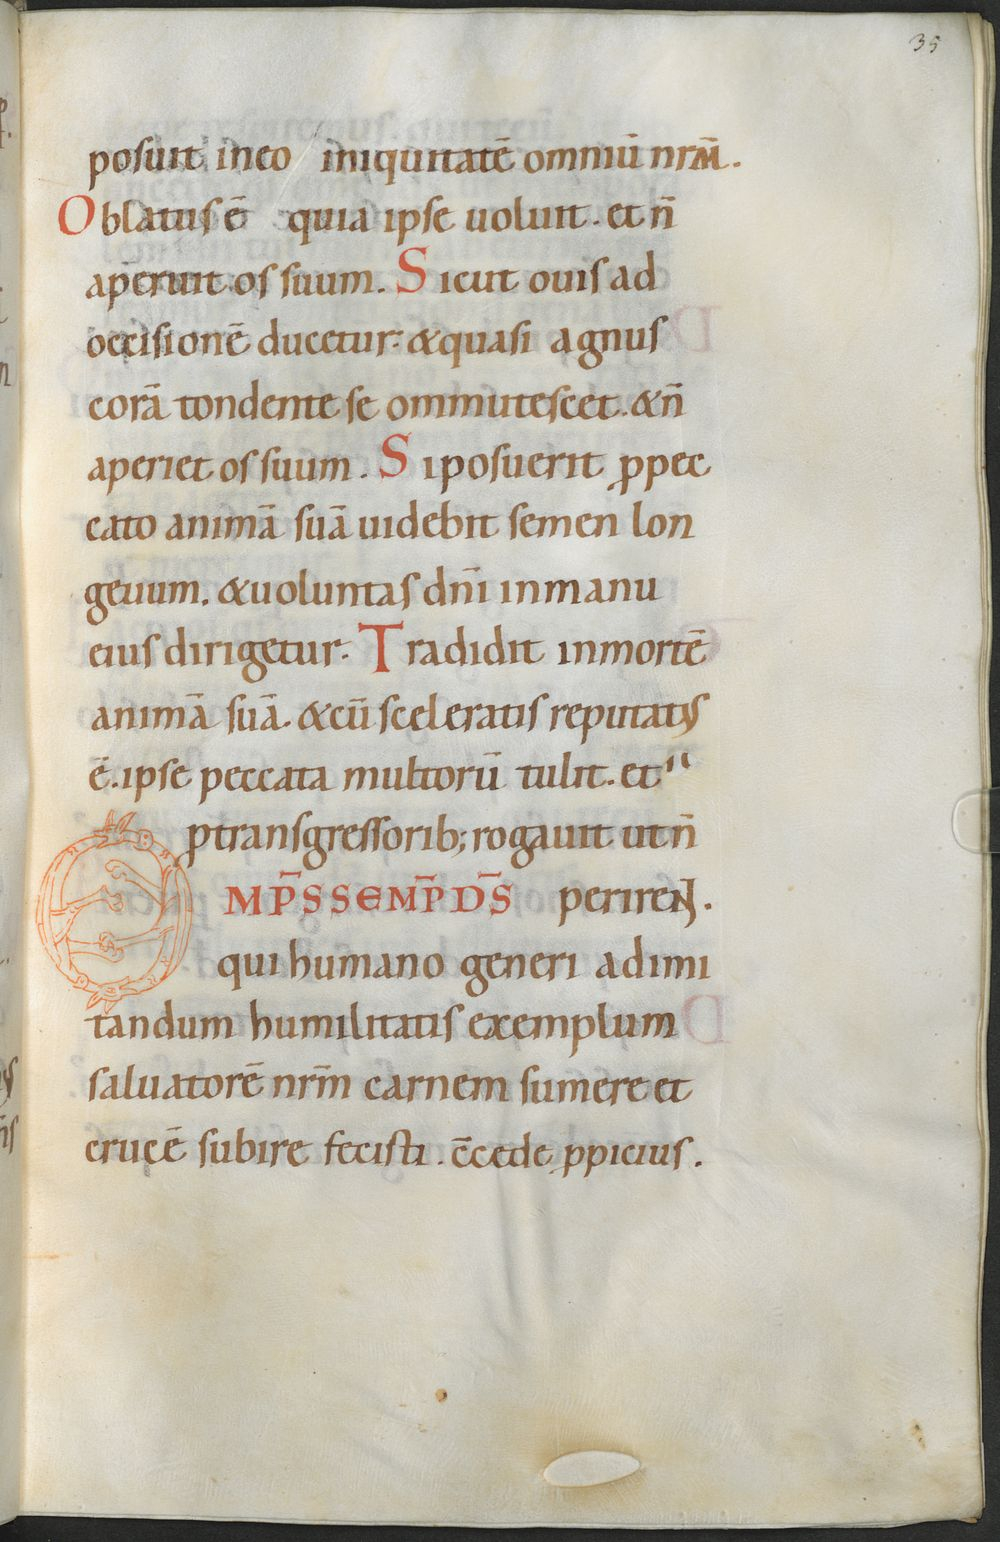 35
posuit ineo iniquitatē omniū nrm̄.
Oblatus ē quia ipse uoluit. et n̄
aperuit os suum. Sicut ouis ad
occisionē ducetur: &quasi agnus
corā tondente se ommutescet. &n̄
aperiet os suum. Si posuerit ꝓpec
cato animā suā uidebit semen lon
geuum. &uoluntas dn̄i inmanu
eius dirigetur. Tradidit inmortē
animā suā. &cū sceleratis reputatus
ē. ipse peccata multorū tulit. et
ꝓtransgressorib; rogauit ut n̄
OMP̄S SEMP̄ DS̄ perirent.
qui humano generi adimi
tandum humilitatis exemplum
saluatorē nrm̄ carnem sumere et
crucē subire fecisti. c̄cede ꝓpicius.